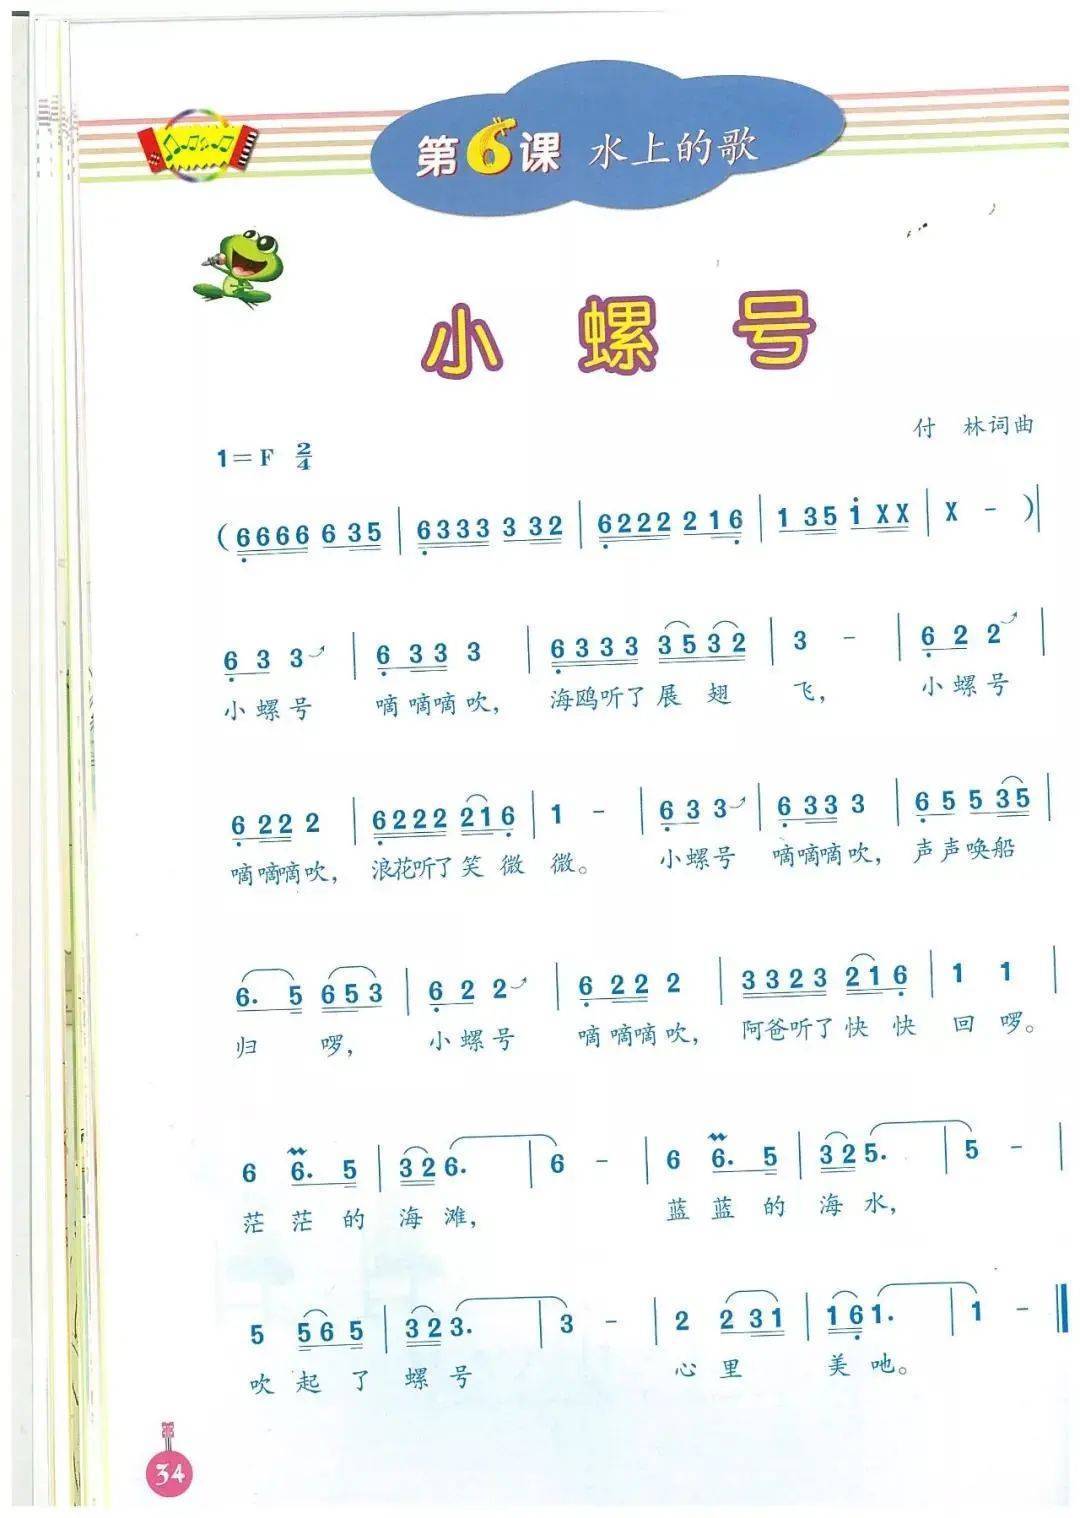 第6课 水上的歌
小螺号
付 林词曲
1=F 2/4
(6666 635 | 6333 332 | 6222 216 | 1 35 i XX | X - )|
6 3 3 | 6 33 3 | 6333 3532 | 3 - | 6 2 2 |
小螺号 嘀嘀嘀吹, 海鸥听了展翅 飞, 小螺号
6 22 2 | 6222 216 | 1 - | 6 3 3 | 6 33 3 | 6 5 5 35 |
嘀嘀嘀吹, 浪花听了笑微 微。 小螺号 嘀嘀嘀吹, 声声唤船
6. 5 653 | 6 2 2 | 6 22 2 | 3323 216 | 1 1 |
归 啰, 小螺号 嘀嘀嘀吹, 阿爸听了快快 回啰。
6 6. 5 | 32 6. | 6 - | 6 6. 5 | 32 5. | 5 - |
茫茫的 海滩, 蓝蓝的 海水,
5 565 | 323. | 3 - | 2 231 | 161. | 1 - ‖
吹起了 螺号 心里 美吔。
34